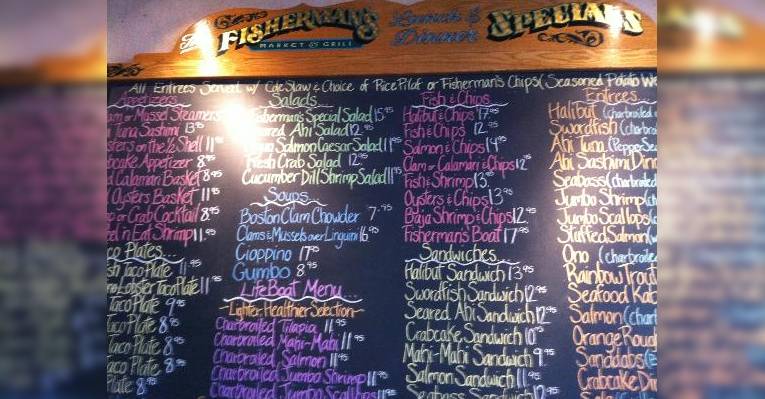 The
FISHERMAN'S
MARKET & GRILL
Lunch &
Dinner
SPECIALS
All Entrees Served w/ Cole Slaw & Choice of Rice Pilaf or Fisherman's Chips (Seasoned Potato We
Appetizers
am or Mussel Steamers
i Tuna Sashimi 13.95
sters on the 1/2 Shelf 11
bcake Appetizer 8.95
d Calamari Basket 8.95
Oysters Basket 11.95
p or Crab Cocktail 8.95
el n' Eat Shrimp 11.95
co Plates
sh Taco Plate 11.95
Lobster Taco Plate 11
Taco Plate 9.95
Taco Plate 8.95
Taco Plate 8.95
Plate 8.95
Salads
Fisherman's Special Salad 15.95
Seared Ahi Salad 12.95
Salmon Caesar Salad 11.95
Fresh Crab Salad 12.95
Cucumber Dill Shrimp Salad 11.95
Soups
Boston Clam Chowder 7.95
Clams & Mussels over Linguini 16.95
Cioppino 17.95
Gumbo 8.95
Life Boat Menu
-Lighter Healthier Selection-
Charbroiled Tilapia 11.95
Charbroiled Mahi-Mahi 11.95
Charbroiled Salmon 11.95
Charbroiled Jumbo Shrimp 11.95
Charbroiled Jumbo Scallops 11.95
Fish & Chips
Halibut & Chips 17.95
Fish & Chips 12.95
Salmon & Chips 14.95
Clam or Calamari & Chips 12.95
Fish & Shrimp 13.95
Oysters & Chips 13.95
Baja Shrimp & Chips 12.95
Fisherman's Boat 17.95
Sandwiches
Halibut Sandwich 13.95
Swordfish Sandwich 12.95
Seared Ahi Sandwich 12.95
Crabcake Sandwich 10.95
Mahi-Mahi Sandwich 9.95
Salmon Sandwich 11.95
Seabass Sandwich 12.95
Entrees
Halibut (charbroiled
Swordfish (charbro
Ahi Tuna (Pepper Sea
Ahi Sashimi Dinn
Seabass (charbroiled
Jumbo Shrimp (ch
Jumbo Scallops (
Stuffed Salmon (w
Ono (charbroile
Rainbow Trout
Seafood Kab
Salmon (char
Orange Rough
Sanddabs (
Crabcake Din